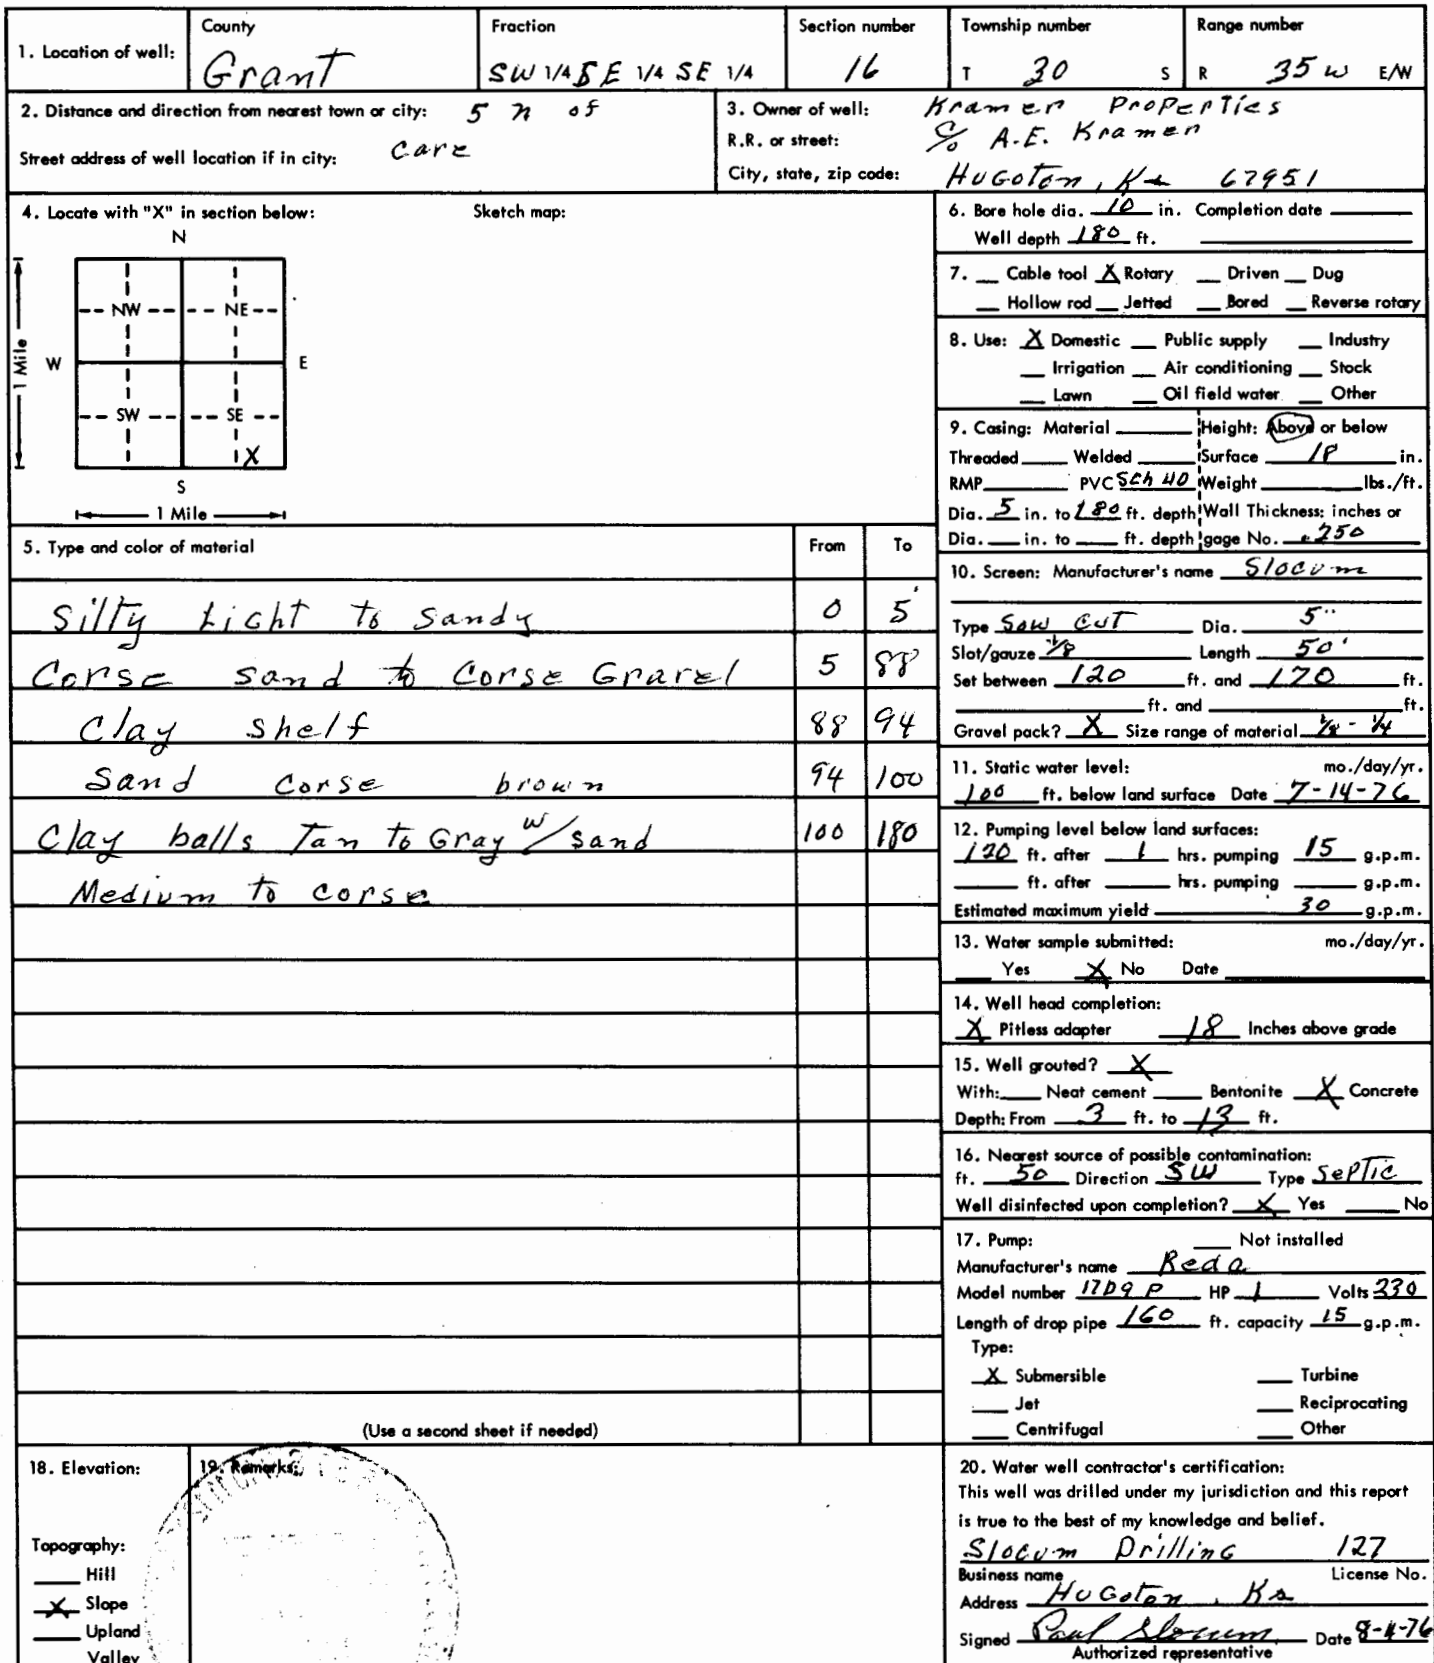 1. Location of well: County Grant Fraction SW 1/4 SE 1/4 SE 1/4 Section number 16 Township number T 30 S Range number R 35 W E/W
2. Distance and direction from nearest town or city: 5 n of
Street address of well location if in city: Cave
3. Owner of well: Kramer Properties
R.R. or street: c/o A.E. Kramer
City, state, zip code: Hugoton, Ks 67951
4. Locate with "X" in section below: Sketch map:
N
NW NE
W E
1 Mile
SW SE
X
S
1 Mile
5. Type and color of material From To
Silty Light to sandy 0 5'
Corse sand to Corse Gravel 5 88
Clay shelf 88 94
Sand Corse brown 94 100
Clay balls Tan to Gray w/ sand 100 180
Medium to corse
(Use a second sheet if needed)
6. Bore hole dia. 10 in. Completion date
Well depth 180 ft.
7. Cable tool X Rotary Driven Dug
Hollow rod Jetted Bored Reverse rotary
8. Use: X Domestic Public supply Industry
Irrigation Air conditioning Stock
Lawn Oil field water Other
9. Casing: Material Height: Above or below
Threaded Welded Surface 18 in.
RMP PVC Sch 40 Weight lbs./ft.
Dia. 5 in. to 180 ft. depth Wall Thickness: inches or
Dia. in. to ft. depth gage No. .250
10. Screen: Manufacturer's name Slocum
Type Saw Cut Dia. 5"
Slot/gauze 1/8 Length 50'
Set between 120 ft. and 170 ft.
ft. and ft.
Gravel pack? X Size range of material 1/8 - 1/4
11. Static water level: mo./day/yr.
100 ft. below land surface Date 7-14-76
12. Pumping level below land surfaces:
120 ft. after 1 hrs. pumping 15 g.p.m.
ft. after hrs. pumping g.p.m.
Estimated maximum yield 30 g.p.m.
13. Water sample submitted: mo./day/yr.
Yes X No Date
14. Well head completion:
X Pitless adapter 18 Inches above grade
15. Well grouted? X
With: Neat cement Bentonite X Concrete
Depth: From 3 ft. to 13 ft.
16. Nearest source of possible contamination:
ft. 50 Direction SW Type Septic
Well disinfected upon completion? X Yes No
17. Pump: Not installed
Manufacturer's name Reda
Model number 17D9 P HP 1 Volts 230
Length of drop pipe 160 ft. capacity 15 g.p.m.
Type:
X Submersible Turbine
Jet Reciprocating
Centrifugal Other
18. Elevation:
Topography:
Hill
X Slope
Upland
Valley
19. Remarks:
20. Water well contractor's certification:
This well was drilled under my jurisdiction and this report
is true to the best of my knowledge and belief.
Slocum Drilling 127
Business name License No.
Address Hugoton, Ks
Signed Paul Slocum Date 8-4-76
Authorized representative